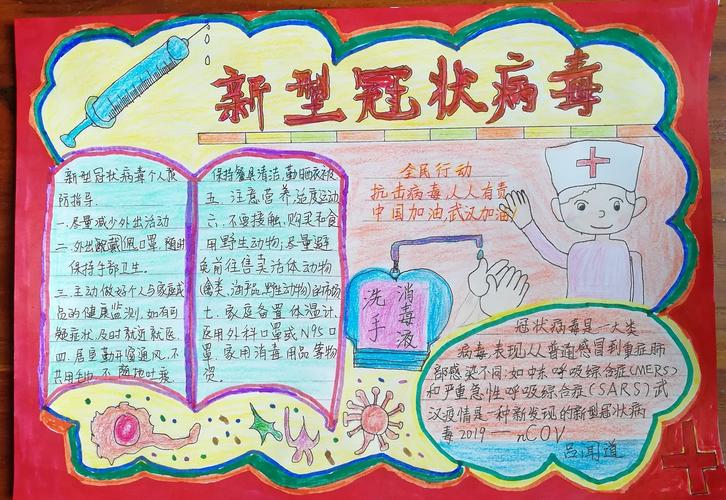 新型冠状病毒
新型冠状病毒个人预
防指导.
一.尽量减少外出活动
二.外出佩戴口罩,随时
保持手部卫生。
三.主动做好个人与家庭成
员的健康监测,如有可
疑症状,及时就近就医.
四.居室勤开窗通风,不
共用毛巾,不随地吐痰
保持餐具清洁,勤晒衣被
五.注意营养,适度运动
六.不要接触,购买和食
用野生动物;尽量避
免前往售卖活体动物
(禽类,海产品,野生动物)的市场
七.家庭备置体温计,
医用外科口罩或N95口
罩,家用消毒用品等物
资。
全民行动
抗击病毒人人有责
中国加油,武汉加油
消毒液
洗手
冠状病毒是一大类
病毒,表现从普通感冒到重症肺
部感染不同;如中东呼吸综合症(MERS)
和严重急性呼吸综合症(SARS)武
汉疫情是一种新发现的新型冠状病
毒2019——nCOV
吕闻道